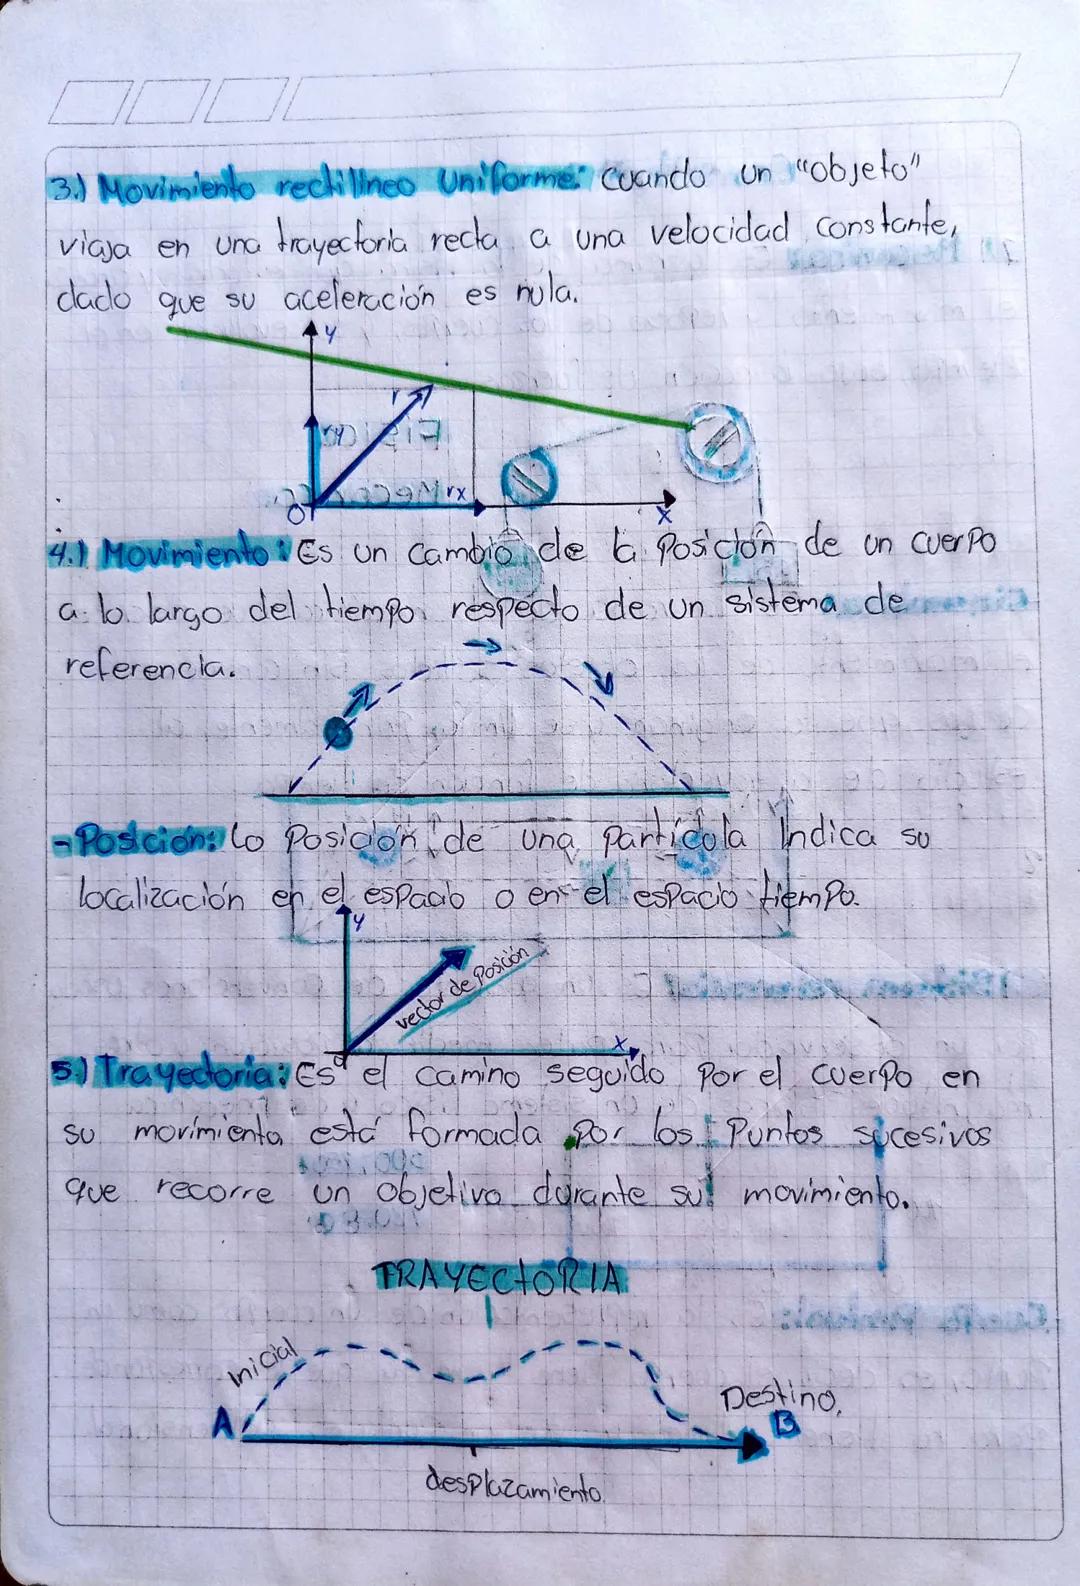 3.) Movimiento rectilíneo Uniforme: Cuando un "objeto"
viaja en una trayectoria recta a una velocidad constante,
dado que su aceleración es nula.
y
r
ry
rx
O
x
4.) Movimiento: Es un cambio de la Posición de un cuerpo
a lo largo del tiempo respecto de un sistema de
referencia.
- Posición: Lo Posición de una Partícula Indica su
localización en el espacio o en el espacio tiempo.
y
vector de Posición
x
5.) Trayectoria: Es el camino seguido Por el cuerpo en
su movimiento está formada por los Puntos sucesivos
que recorre un objetivo durante su movimiento.
TRAYECTORIA
Inicial
Destino.
A
B
desplazamiento.